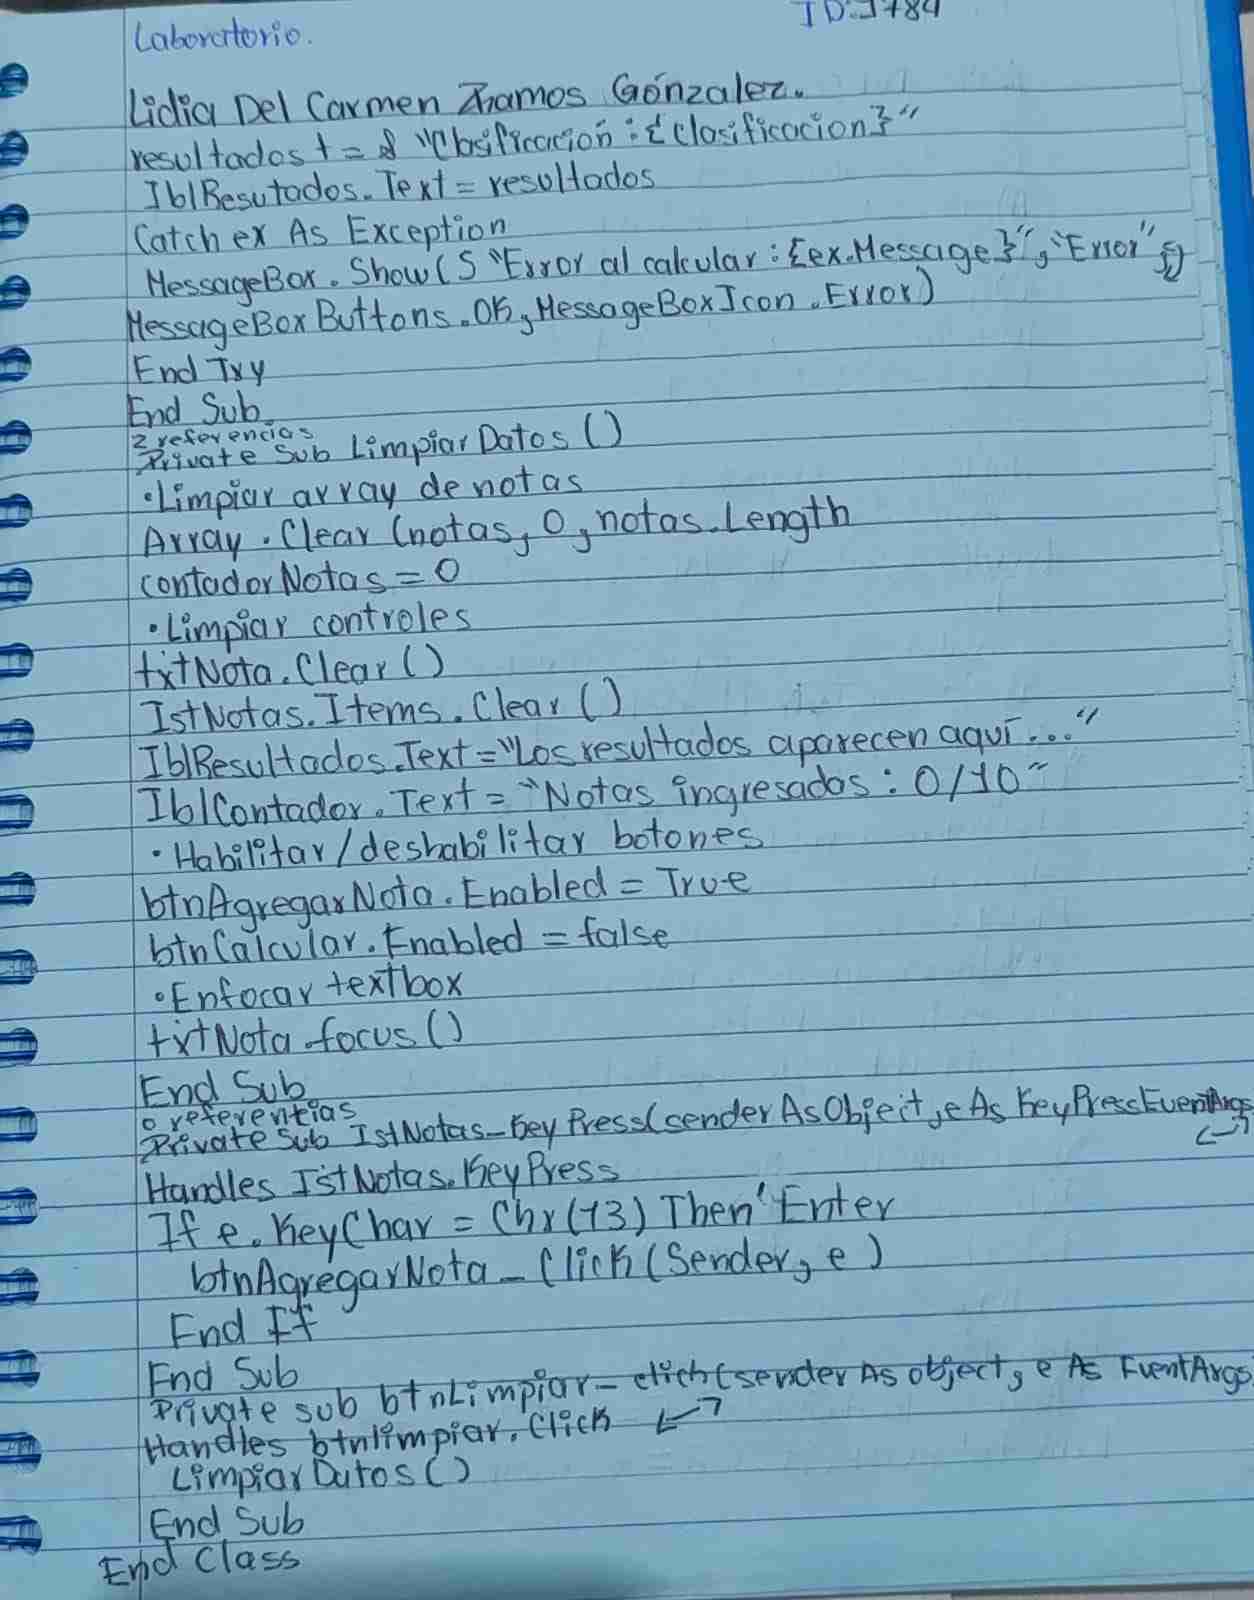 Laboratorio.
ID: 1784
Lidia Del Carmen Ramos Gónzalez.
resultados += $ "Clasificación : {Clasificacion}"
IblResutados.Text = resultados
Catch ex As Exception
MessageBox.Show(S "Error al calcular : {ex.Message}", "Error",
MessageBoxButtons.OK, MessageBoxIcon.Error)
End Try
End Sub
2 referencias
Private Sub LimpiarDatos ()
•Limpiar array de notas
Array.Clear (notas, 0, notas.Length
contadorNotas = 0
•Limpiar controles
txtNota.Clear ()
IstNotas.Items.Clear ()
IblResultados.Text = "Los resultados aparecen aquí..."
IblContador.Text = "Notas ingresados : 0/10"
•Habilitar/deshabilitar botones
btnAgregarNota.Enabled = True
btnCalcular.Enabled = false
•Enfocar textbox
txtNota.focus ()
End Sub
0 referentias
Private Sub IstNotas_KeyPress(sender As Object, e As KeyPressEventArgs
Handles IstNotas.KeyPress
If e.KeyChar = Chr(13) Then 'Enter
btnAgregarNota_Click (Sender, e)
End If
End Sub
Private sub btnLimpiar_click (sender As object, e As EventArgs
Handles btnlimpiar.Click
LimpiarDatos ()
End Sub
End Class